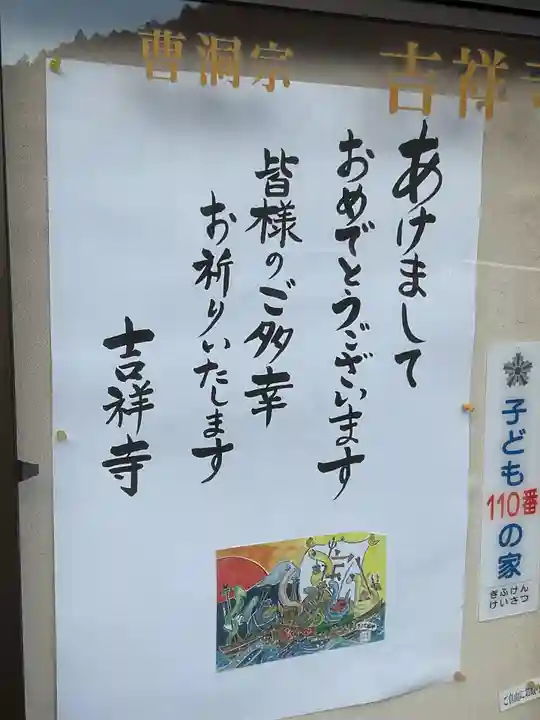 曹洞宗 吉祥寺
あけまして
おめでとうございます
皆様のご多幸
お祈りいたします
吉祥寺
宝
子ども
110番
の家
ぎふけん
けいさつ